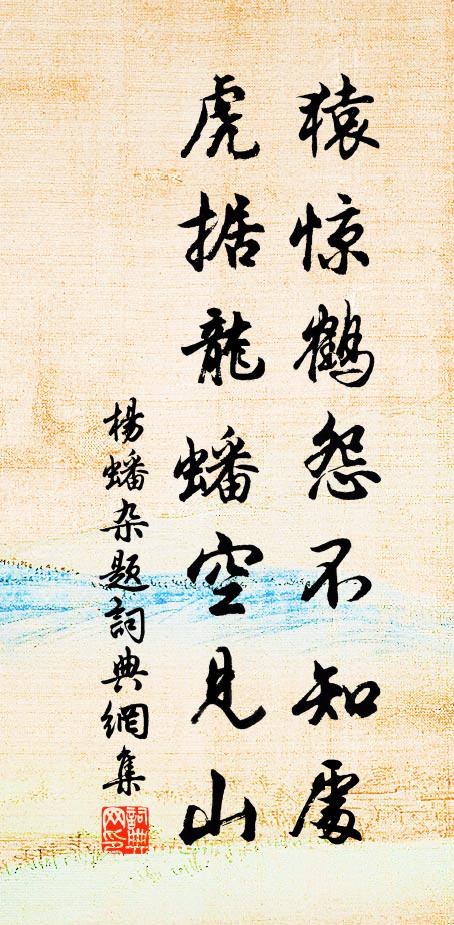 猿惊鹤怨不知處
虎据龍蟠空见山
楊蟠杂题詞典網集
詞典网印